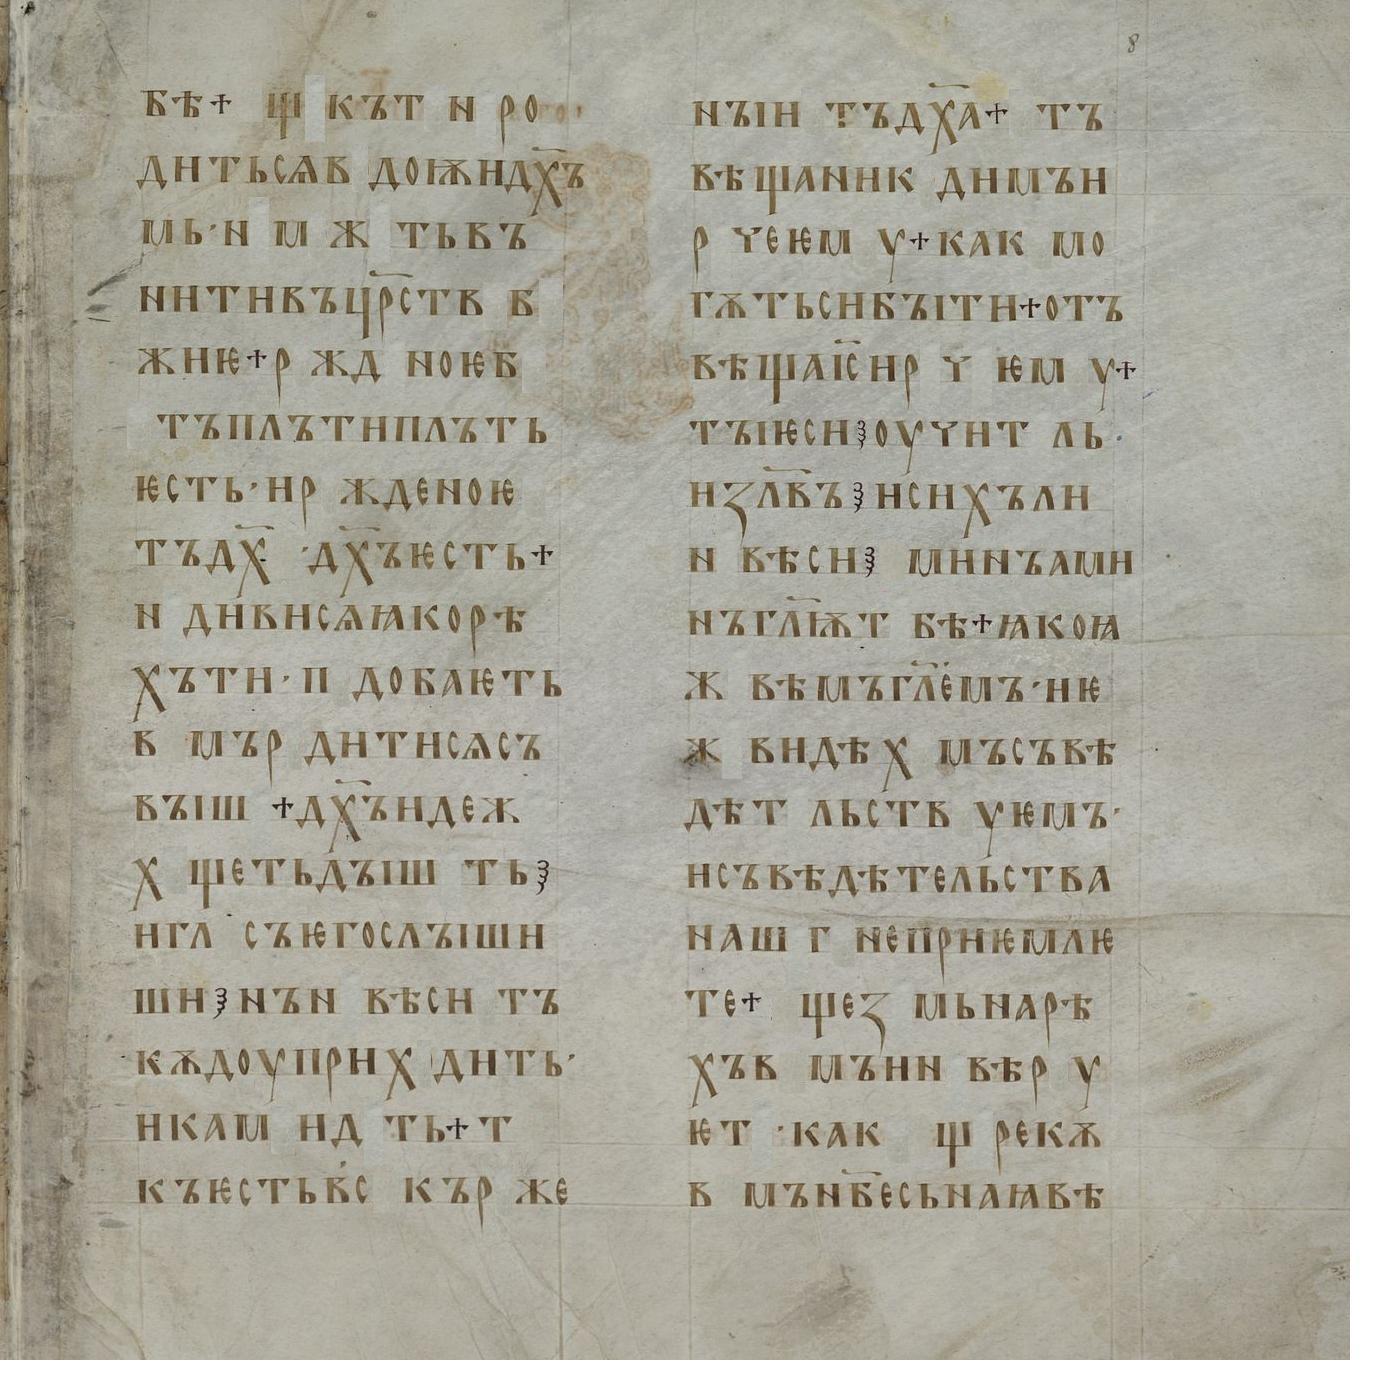 бѣ+ щ кът н ро
дитьсѧв доѭидх҃ъ
мь·и м ж тьвъ
нитивъцр҃ств б
жию+р жд ноюб
тъплътиплъть
ѥсть·ир жденоѥ
тъдх҃ ·дх҃ъѥсть+
н дивисѧꙗкорѣ
хъти·п добаѥть
в мър дитисѧсъ
въіш +дх҃ъидеж
х щетьдъіш ть⸾
игл съѥгослъіши
ши⸾нън вѣси тъ
кѫдоуприх дить·
икам ид ть+т
къѥстьвс кър же
нъіи тъдх҃а+ тъ
вѣщаник димън
р чеѥм у+как мо
гѫтьсибъіти+отъ
вѣщаіс҃ир ч ѥм у+
тъіѥси⸾оучит ль·
изл҃въ⸾исихъли
н вѣси⸾ минъами
нъгл҃ѭт бѣ+ꙗкоꙗ
ж вѣмъгл҃емъ·иѥ
ж видѣх мъсъвѣ
дѣт льств уѥмъ·
исъвѣдѣтельства
наш г неприѥмлѥ
те+ щеꙁ мьнарѣ
хъв мъни вѣр у
ѥт ·как щ рекѫ
в мънб҃есьнаꙗвѣ